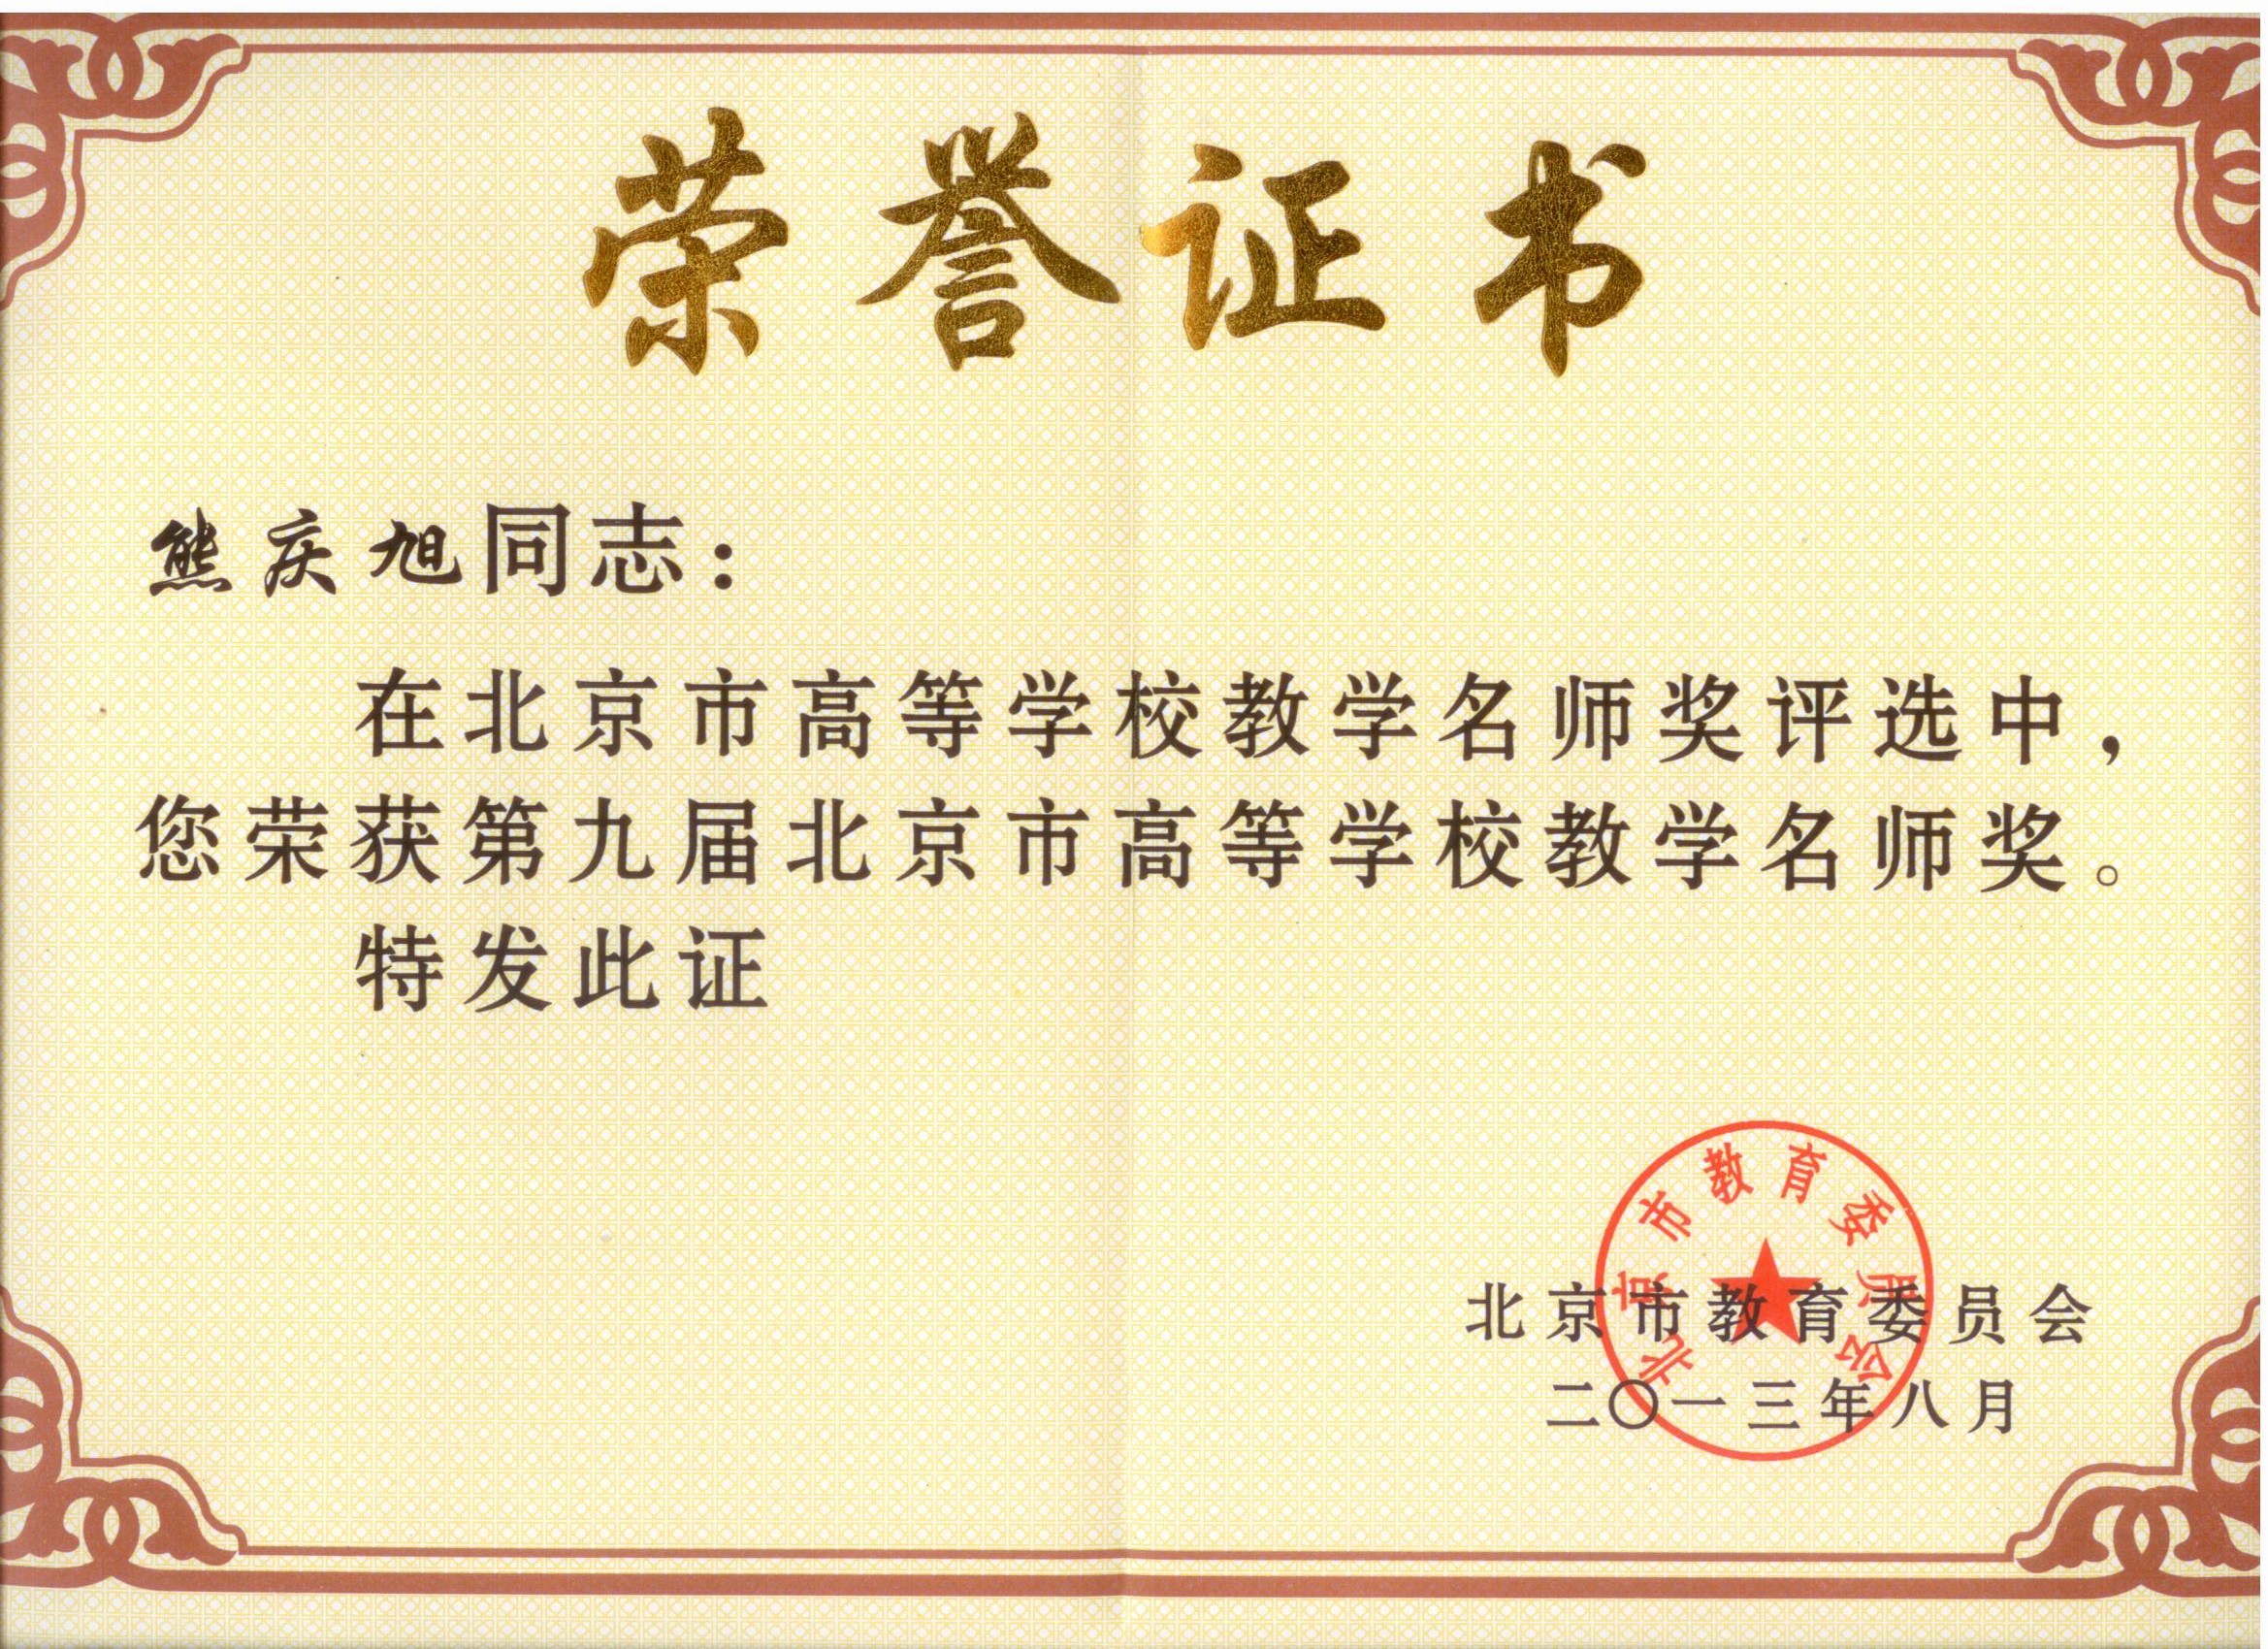 荣誉证书
熊庆旭同志：
在北京市高等学校教学名师奖评选中，
您荣获第九届北京市高等学校教学名师奖。
特发此证
北京市教育委员会
北京市教育委员会
二〇一三年八月